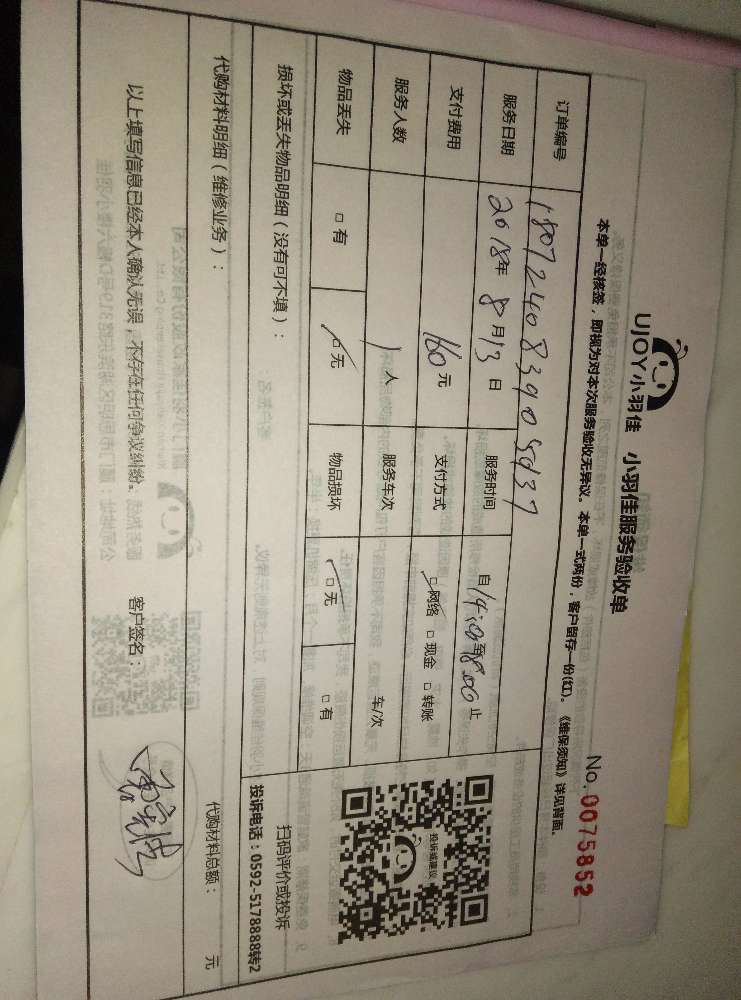 UJOY小羽佳 小羽佳服务验收单
No. 0075852
本单一经核签，即视为对本次服务验收无异议。本单一式两份，客户留存一份(红)。《维保须知》详见背面。
订单编号
服务日期 2018年 8月13日 服务时间 自14:00至18:00止
支付费用 160元 支付方式 □网络 □现金 □转账
服务人数 1人 服务车次 车/次
物品丢失 □有 □无 物品损坏 □无 □有
投诉或建议
扫码评价或投诉
投诉电话：0592-5178888转2
损坏或丢失物品明细（没有可不填）：
代购材料明细（维修业务）： 代购材料总额： 元
以上填写信息已经本人确认无误，不存在任何争议纠纷。 客户签名：